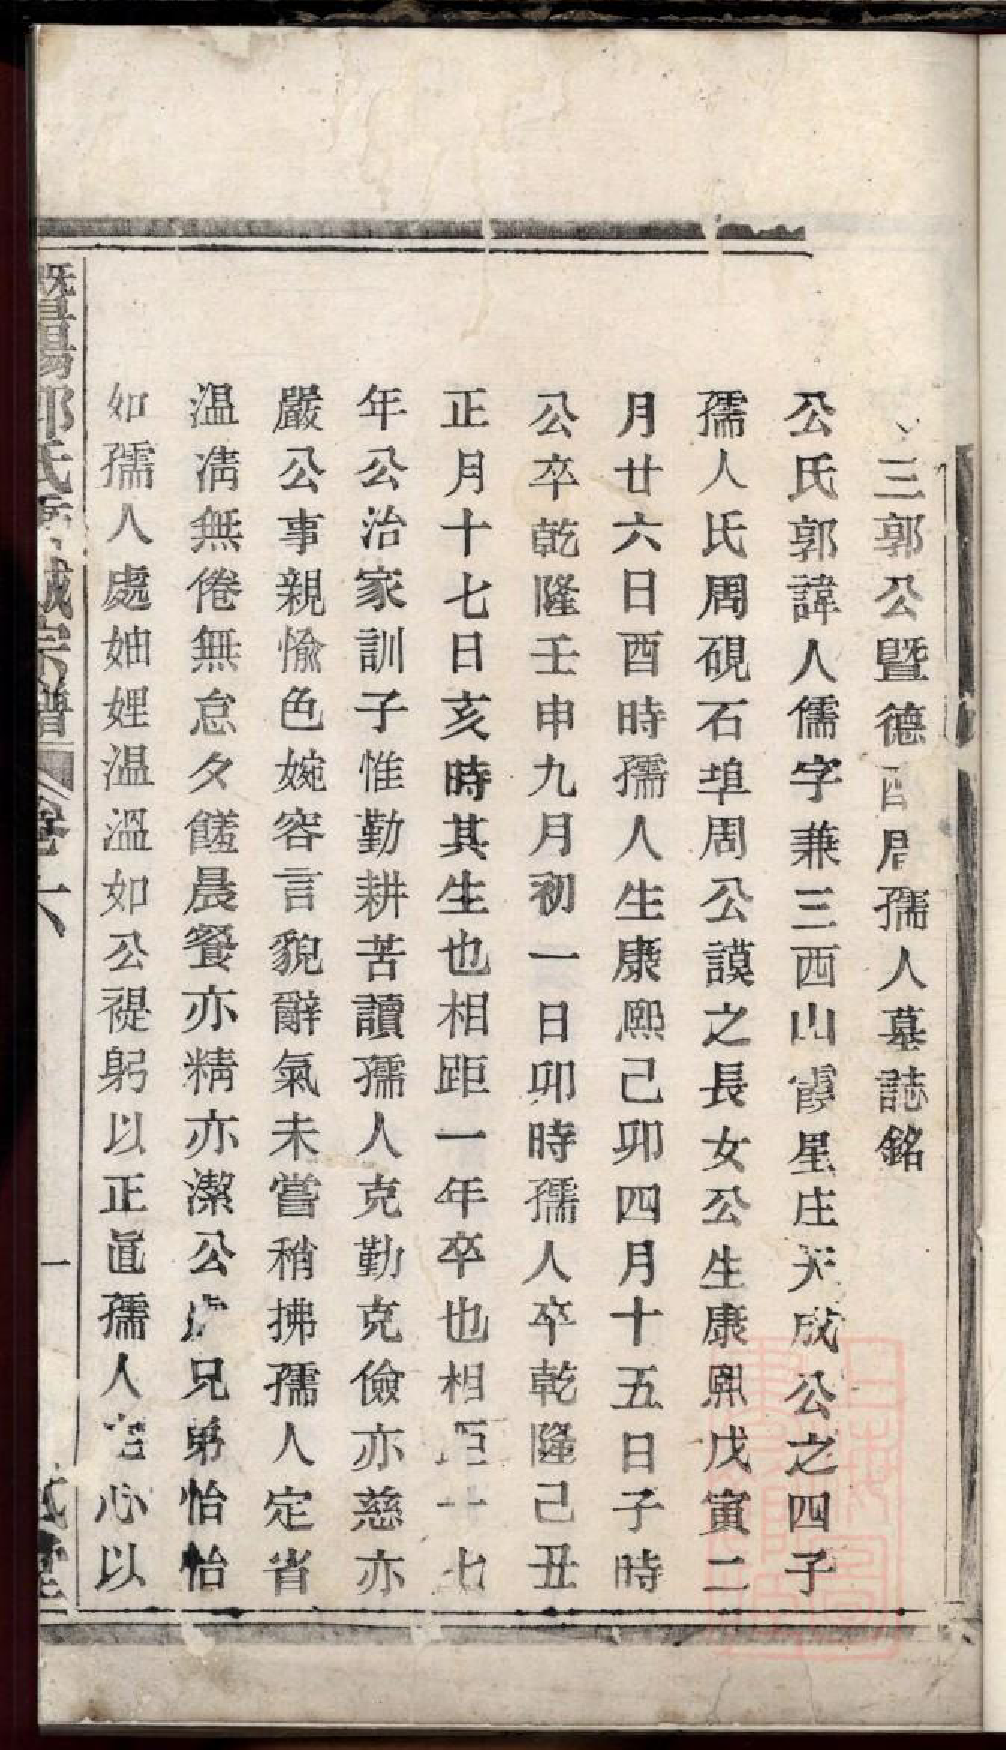 三郭公暨德配周孺人墓誌銘
公氏郭諱人儒字兼三西山霞星庄天成公之四子
孺人氏周硯石埠周公謨之長女公生康熙戊寅二
月廿六日酉時孺人生康熙己卯四月十五日子時
公卒乾隆壬申九月初一日卯時孺人卒乾隆己丑
正月十七日亥時其生也相距一年卒也相距十七
年公治家訓子惟勤耕苦讀孺人克勤克儉亦慈亦
嚴公事親愉色婉容言貌辭氣未嘗稍拂孺人定省
温凊無倦無怠夕饈晨餐亦精亦潔公處兄弟怡怡
如孺人處妯娌温溫如公禔躬以正直孺人宅心以
暨陽郭氏孝誠宗譜
卷六
一
誠堂